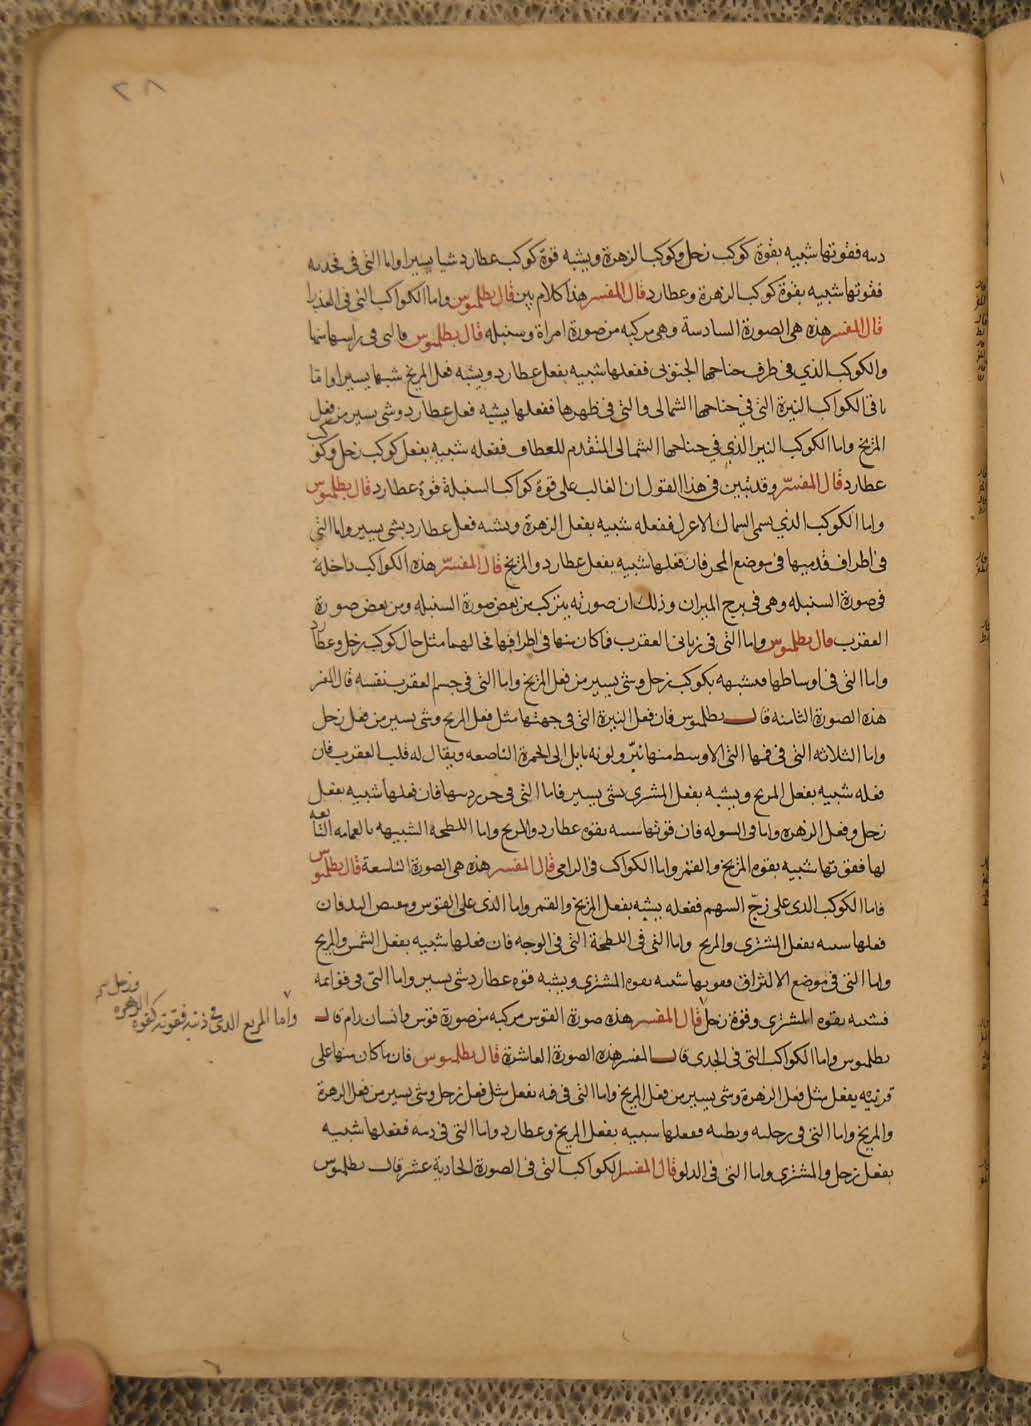 ٨٢
دنبه فقوتها شبيه بقوة كوكب زحل وكوكب الزهرة ويشبه قوة كوكب عطارد شيا يسيرا واما التي في فخديه
فقوتها شبيه بقوة كوكب الزهرة وعطارد قال المفسر هذا كلام بين قال بطلميوس واما الكواكب التي في العذرا
قال المفسر هذه هي الصورة السادسة وهي مركبه من صورة امراة وسنبله قال بطلميوس فالتي في راسها منها
والكوكب الذي في طرف جناحها الجنوبي ففعلها شبيه بفعل عطارد ويشبه فعل المريخ شبها يسيرا واما
باقي الكواكب النيرة التي في جناحها الشمالي والتي في ظهرها ففعلها يشبه فعل عطارد وشي يسير من فعل
المريخ واما الكوكب النير الذي في جناحها الشمالي المتقدم للعطاف ففعله شبيه بفعل كوكب زحل وكوكب
عطارد قال المفسر وقد تبين في هذا القول ان الغالب على قوة كواكب السنبلة قوة عطارد قال بطلميوس
واما الكوكب الذي يسمى السماك الاعزل ففعله شبيه بفعل الزهرة ويشبه فعل عطارد بشي يسير واما التي
في اطراف قدميها في موضع المجر فان فعلها شبيه بفعل عطارد والمريخ قال المفسر هذه الكواكب داخلة
في صورة السنبله وهي في برج الميزان وذلك ان صورته يتركب من بعض صورة السنبله ومن بعض صورة
العقرب قال بطلميوس واما التي في زباني العقرب فما كان منها في اطرافها فحالهما مثل حال كوكب زحل وعطارد
واما التي في اوساطها فمشبهه بكوكب زحل وشي يسير من فعل المريخ واما التي في جسم العقرب نفسه قال المفسر
هذه الصورة الثامنه قال بطلميوس فان فعل النيرة التي في جبهتها مثل فعل المريخ وشي يسير من فعل زحل
واما الثلاثه التي في فمها التي الاوسط منها نير ولونه مايل الى الحمرة الناصعه ويقال له قلب العقرب فان
فعله شبيه بفعل المريخ ويشبه بفعل المشتري بشي يسير فاما التي في خرز دنبها فان فعلها شبيه بفعل
زحل وفعل الزهره واما في الشوله فان قوتها شبيه بقوه عطارد والمريخ واما اللطخة الشبيهه بالغمامه التابعه
لها فقوتها شبيه بقوه المريخ والقمر واما الكواكب في الرامي قال المفسر هذه هي الصورة التاسعة قال بطلميوس
فاما الكوكب الذي على زج السهم ففعله يشبه بفعل المريخ والقمر واما الذي على القوس ومقبض اليد فان
فعلها شبيه بفعل المشتري والمريخ واما التي في اللطخة التي في الوجه فان فعلها شبيه بفعل الشمس والمريخ
واما التي في موضع الالتزاق فقوتها شبيه بقوه المشتري ويشبه قوه عطارد شي يسير واما التي في قوائمه
فشبيه بقوه المشتري وقوة زحل قال المفسر هذه صورة القوس مركبه من صورة قوس وانسان رام قال
بطلميوس واما الكواكب التي في الجدى قال المفسر هذه الصورة العاشرة قال بطلميوس فان ما كان منها على
قرنيه يفعل مثل فعل الزهرة وشي يسير من فعل المريخ واما التي في فمه يفعل مثل فعل زحل وشي يسير من فعل الزهرة
والمريخ واما التي في رجليه وبطنه ففعلها شبيه بفعل المريخ وعطارد واما التي في دنبه ففعلها شبيه
بفعل زحل والمشتري واما التي في الدلو قال المفسر الكواكب التي في الصورة الحادية عشر قال بطلميوس
واما المربع الذي في ذنبه فقوته كقوة الزهرة
وزحل